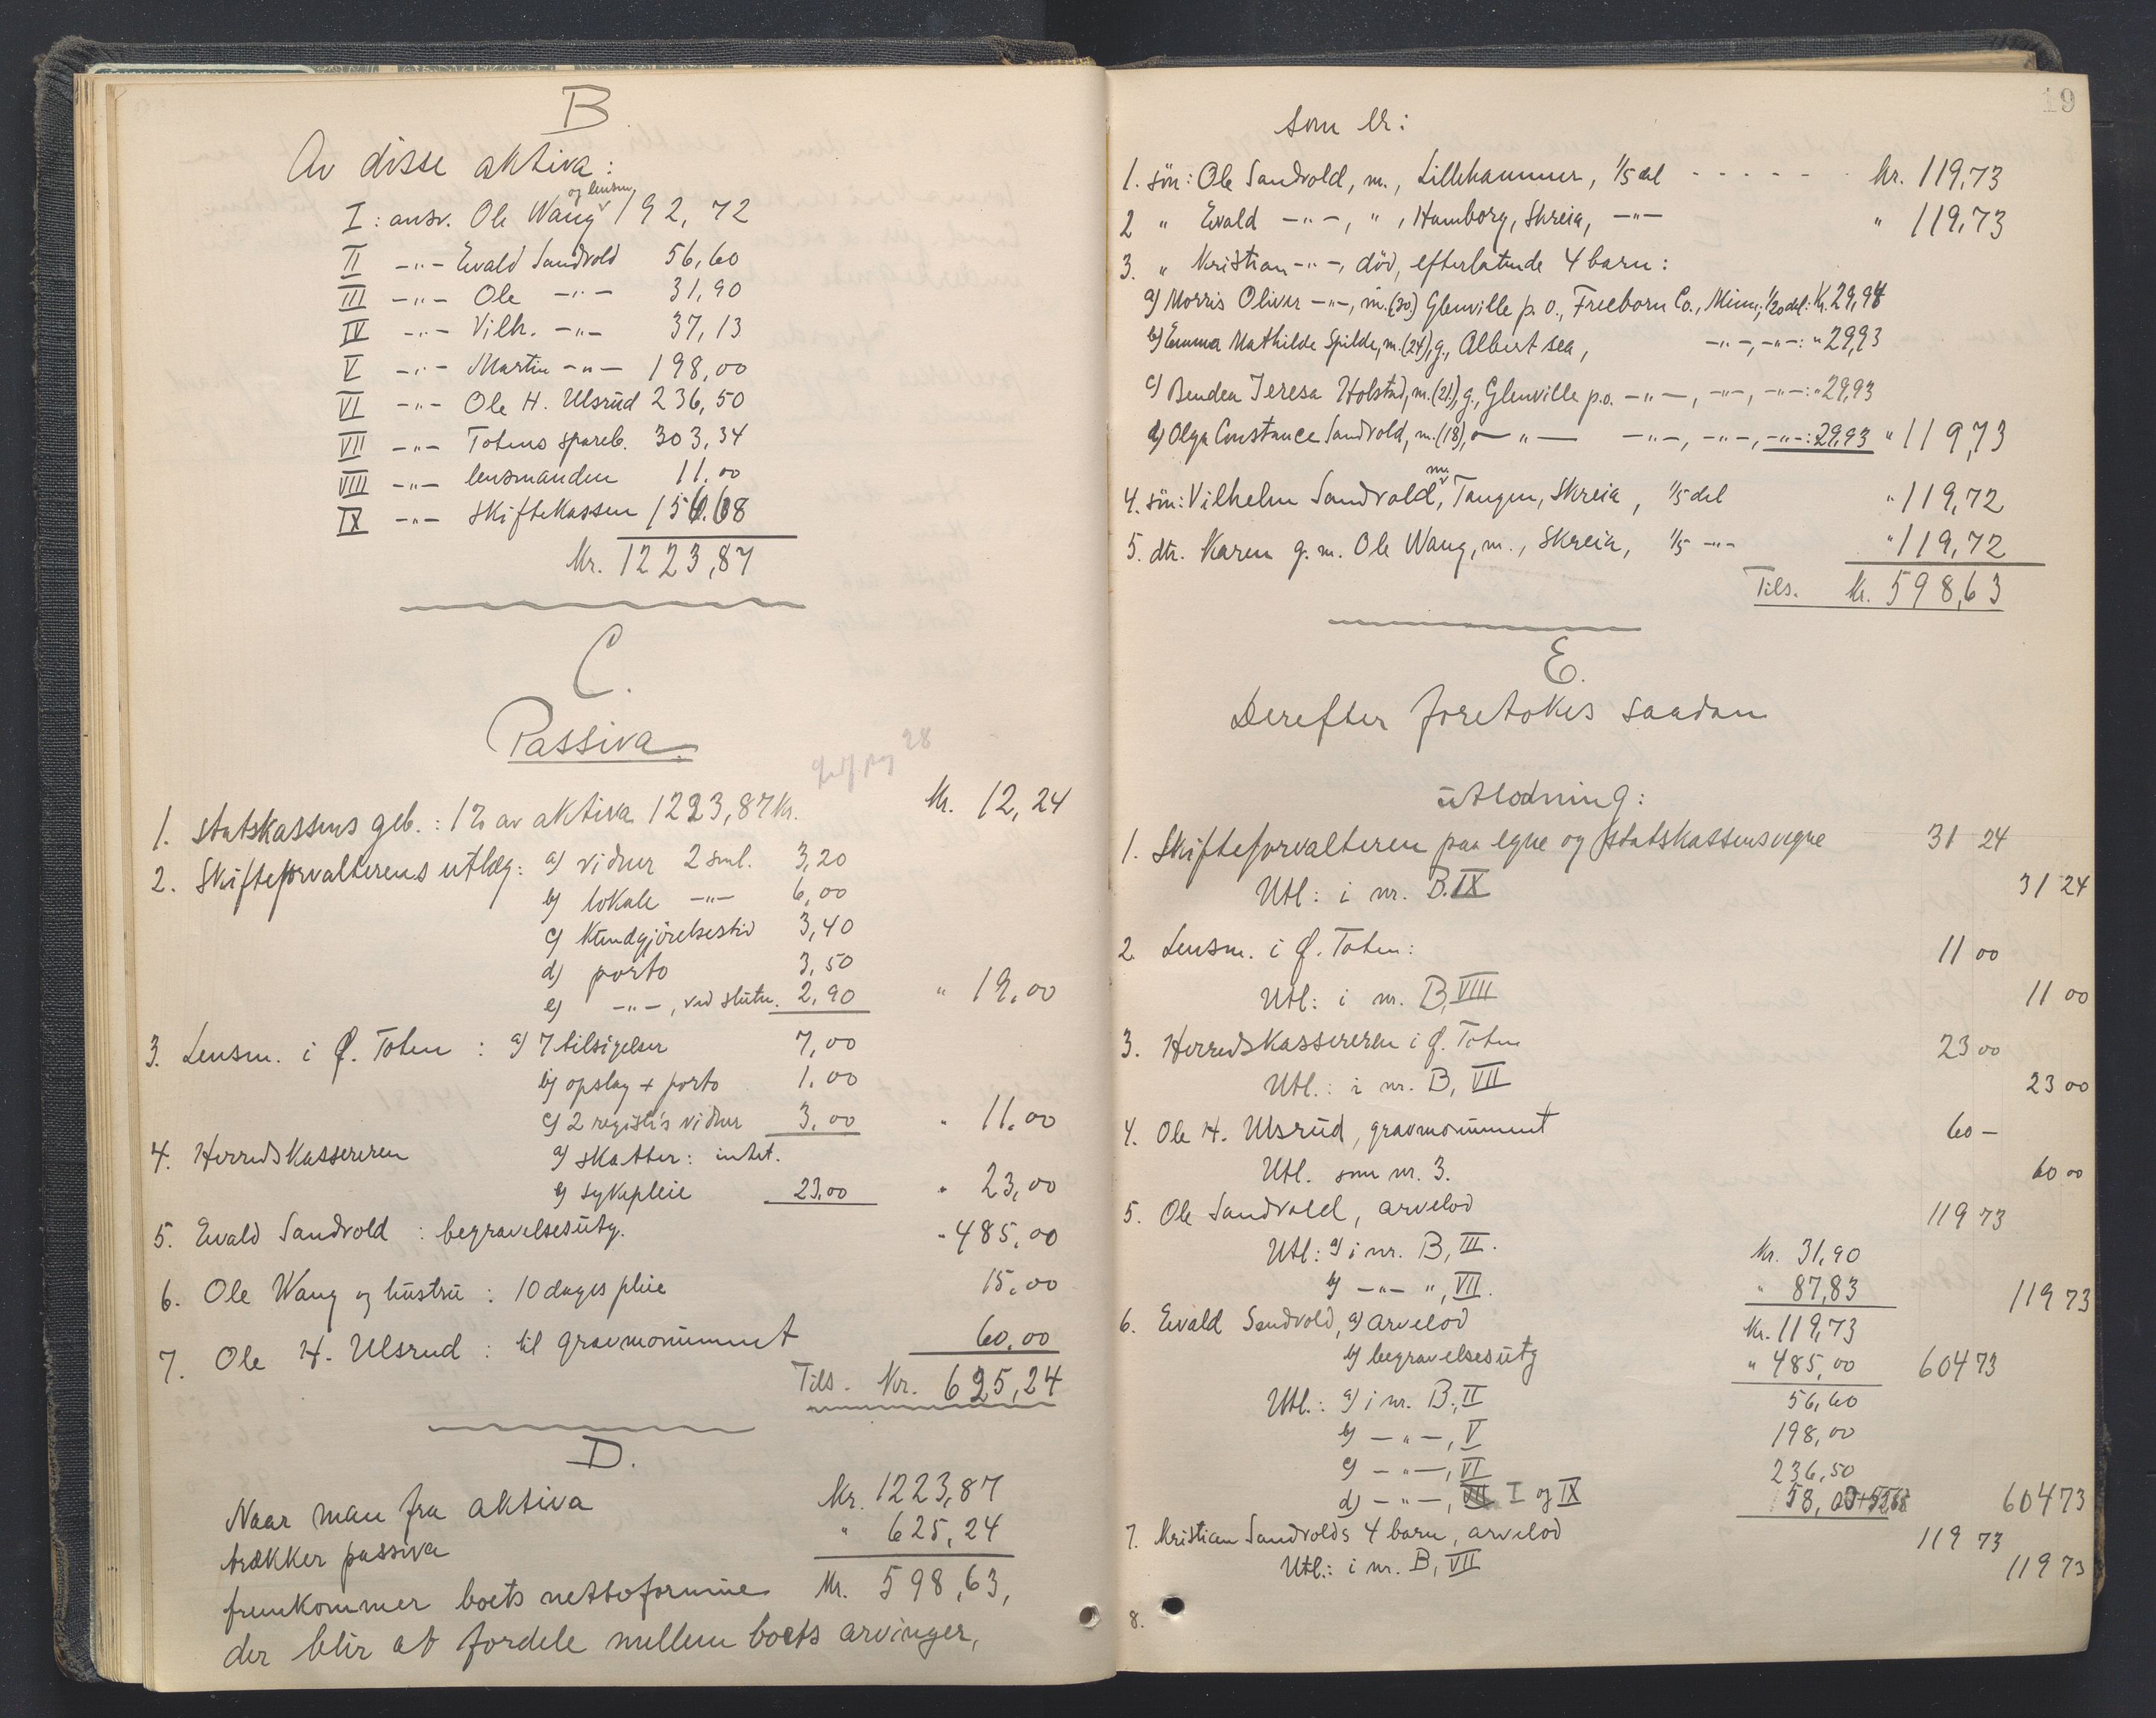 B
Av disse aktiva:
og lensm.
I: ansv. Ole Wang 192,72
II -"- Evald Sandvold 56,60
III -"- Ole -"- 31,90
IV -"- Vilh. -"- 37,13
V -"- Martin -"- 198,00
VI -"- Ole H. Ulsrud 236,50
VII -"- Totens spareb. 303,34
VIII -"- lensmanden 11.00
IX -"- skiftekassen 156.68
Kr. 1223,87
C.
Passiva.
pag 28
1. Statskassens geb.: 1% av aktiva 1223,87 kr. Kr. 12,24
2. Skifteforvalterens utlæg: a) vidner 2 sml. 3,20
b) lokale -"- 6,00
c) kundgjørelsestid 3,40
d) porto 3,50
e) -"-, ved slutn. 2,90 " 19,00
3. Lensm. i Ø. Toten: a) 7 tilsigelser 7,00
b) opslag + porto 1,00
c) 2 registr's vidner 3,00 " 11.00
4. Herredskassereren a) skatter: intet.
b) sykepleie 23,00 " 23,00
5. Evald Sandvold: begravelsesutg. - 485,00
6. Ole Wang og hustru: 10 dages pleie 15,00
7. Ole H. Ulsrud: til gravmonument 60,00
Tils. Kr. 625,24
D.
Naar man fra aktiva Kr. 1223,87
trækker passiva " 625,24
fremkommer boets nettoformue Kr. 598,63,
der blir at fordele mellem boets arvinger,
19
som er:
1. søn: Ole Sandvold, m., Lillehammer, 1/5 del - - - - - - Kr. 119,73
2 " Evald -"-, ", Hamborg, Skreia, -"- " 119,73
3. " Kristian -"-, død, efterlatende 4 barn:
a) Morris Oliver -"-, m. (30) Glenville p.o., Freeborn Co., Minn., 1/20 del: Kr. 29,94
b) Emma Mathilde Spilde, m. (24), g., Albert sea, -"-, -"-: " 29,93
c) Bendea Teresa Holstad, m. (21), g., Glenville p.o. -"-, -"-, -"-: " 29,93
d) Olga Constance Sandvold, m. (18), -"- -"-, -"-, -"-: 29,93 " 119,73
4. søn: Vilhelm Sandvold, m., Tangen, Skreia, 1/5 del " 119,72
5. dtr. Karen g.m. Ole Wang, m., Skreia, 1/5 -"- " 119,72
Tils. Kr. 598,63
E.
Derefter foretokes saadan
utlodning:
1. Skifteforvalteren paa egne og statskassens vegne 31 24
Utl: i nr. B.IX 31 24
2. Lensm. i Ø. Toten: 11 00
Utl: i nr. B, VIII 11 00
3. Herredskassereren i Ø. Toten 23 00
Utl.: i nr. B, VII 23 00
4. Ole H. Ulsrud, gravmonument 60 -
Utl. som nr. 3. 60 00
5. Ole Sandvold, arvelod 119 73
Utl: a) i nr. B, III. Kr. 31,90
b) -"- ", VII. " 87,83 119 73
6. Evald Sandvold, a) arvelod Kr. 119,73
b) begravelsesutg " 485,00 604 73
Utl.: a) i nr. B., II 56,60
b) -"-, V 198,00
c) -"-, VI 236,50
d) -"-, I og IX 58,00 + 604 73
7. Kristian Sandvolds 4 barn, arvelod 119 73
Utl.: i nr. B, VII 119 73
8.